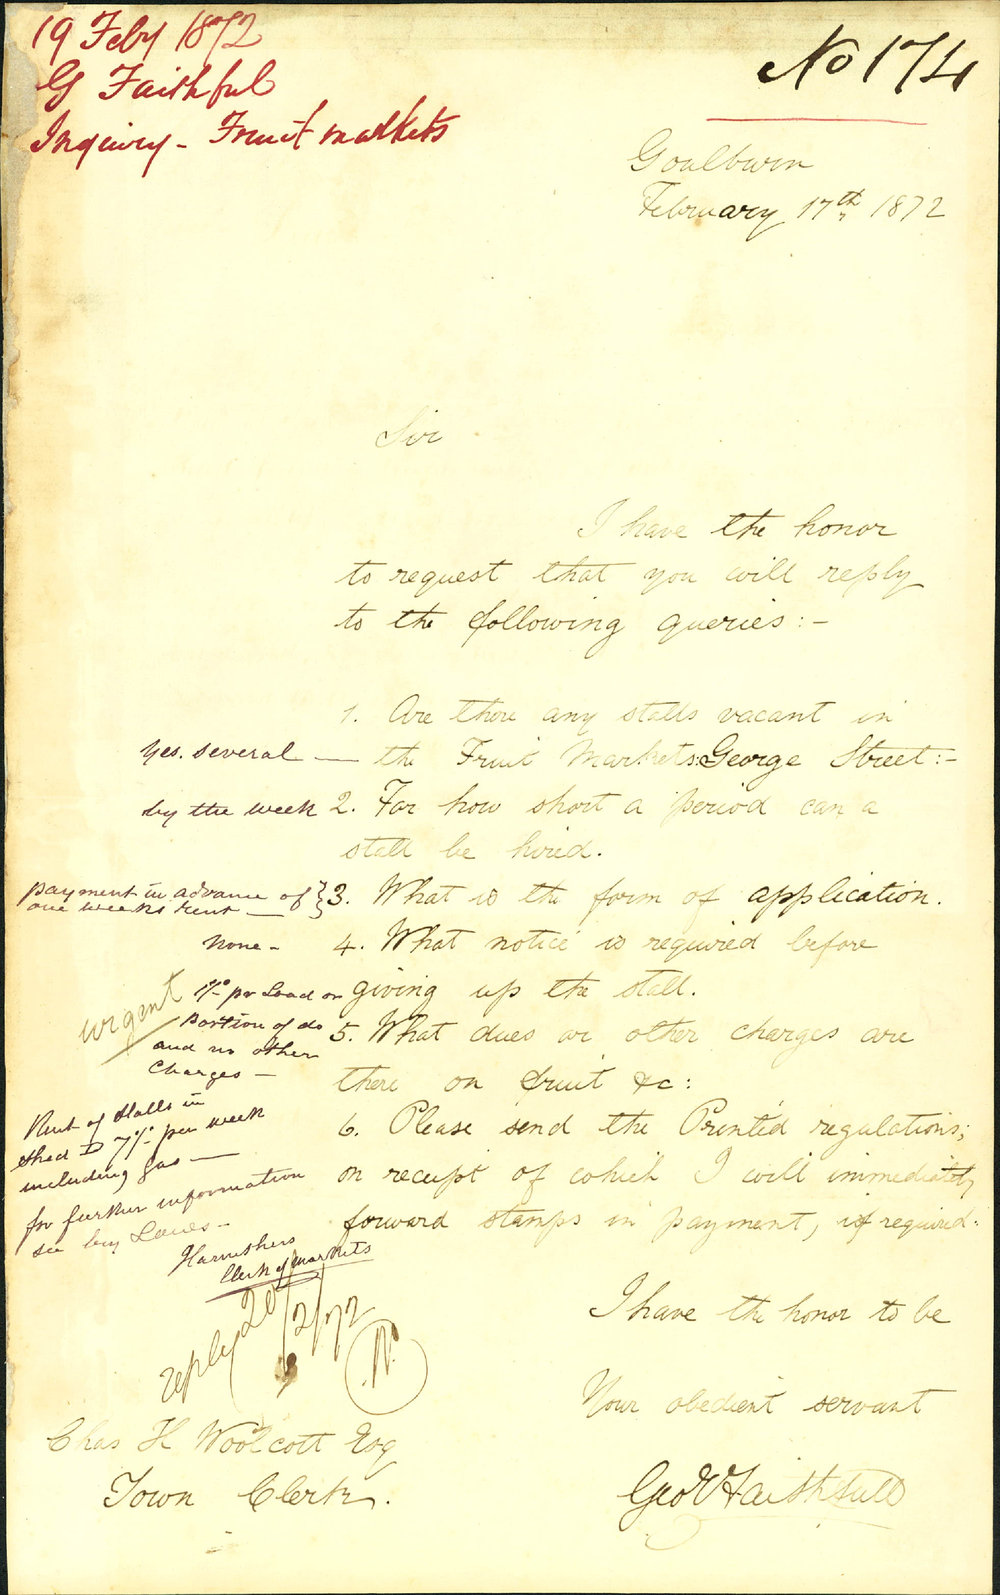 19 Feby 1872
G Faithful
Inquiry - Fruit markets
No 174
Goulburn
February 17th 1872
Sir
I have the honor
to request that you will reply
to the following queries:-
1. Are there any stalls vacant in
Yes. several — the Fruit Markets: George Street:-
by the week 2. For how short a period can a
stall be hired.
payment in advance of
one weeks rent —
} 3. What is the form of application.
None - 4. What notice is required before
giving up the stall.
urgent
1/- pr Load or
portion of do
and no other
Charges —
5. What dues or other charges are
there on fruit &c:
6. Please send the Printed regulations;
on receipt of which I will immediately
forward stamps in payment, if required.
Rent of Stalls in
shed D 7/- per week
including gas —
for further information
see bye Laws -
Clerk of Markets
reply 20/2/72
W.
I have the honor to be
Your obedient servant
Geo Faithfull
Chas H Woolcott Esq
Town Clerk.